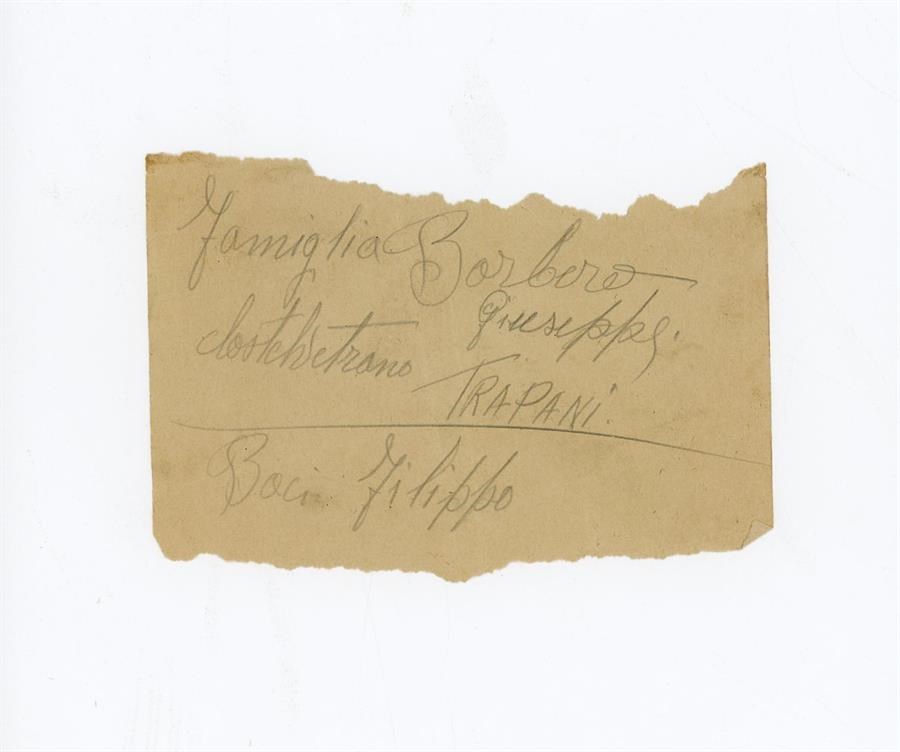 Famiglia Barbera
Giuseppe.
Castelvetrano
TRAPANi.
Baci Filippo